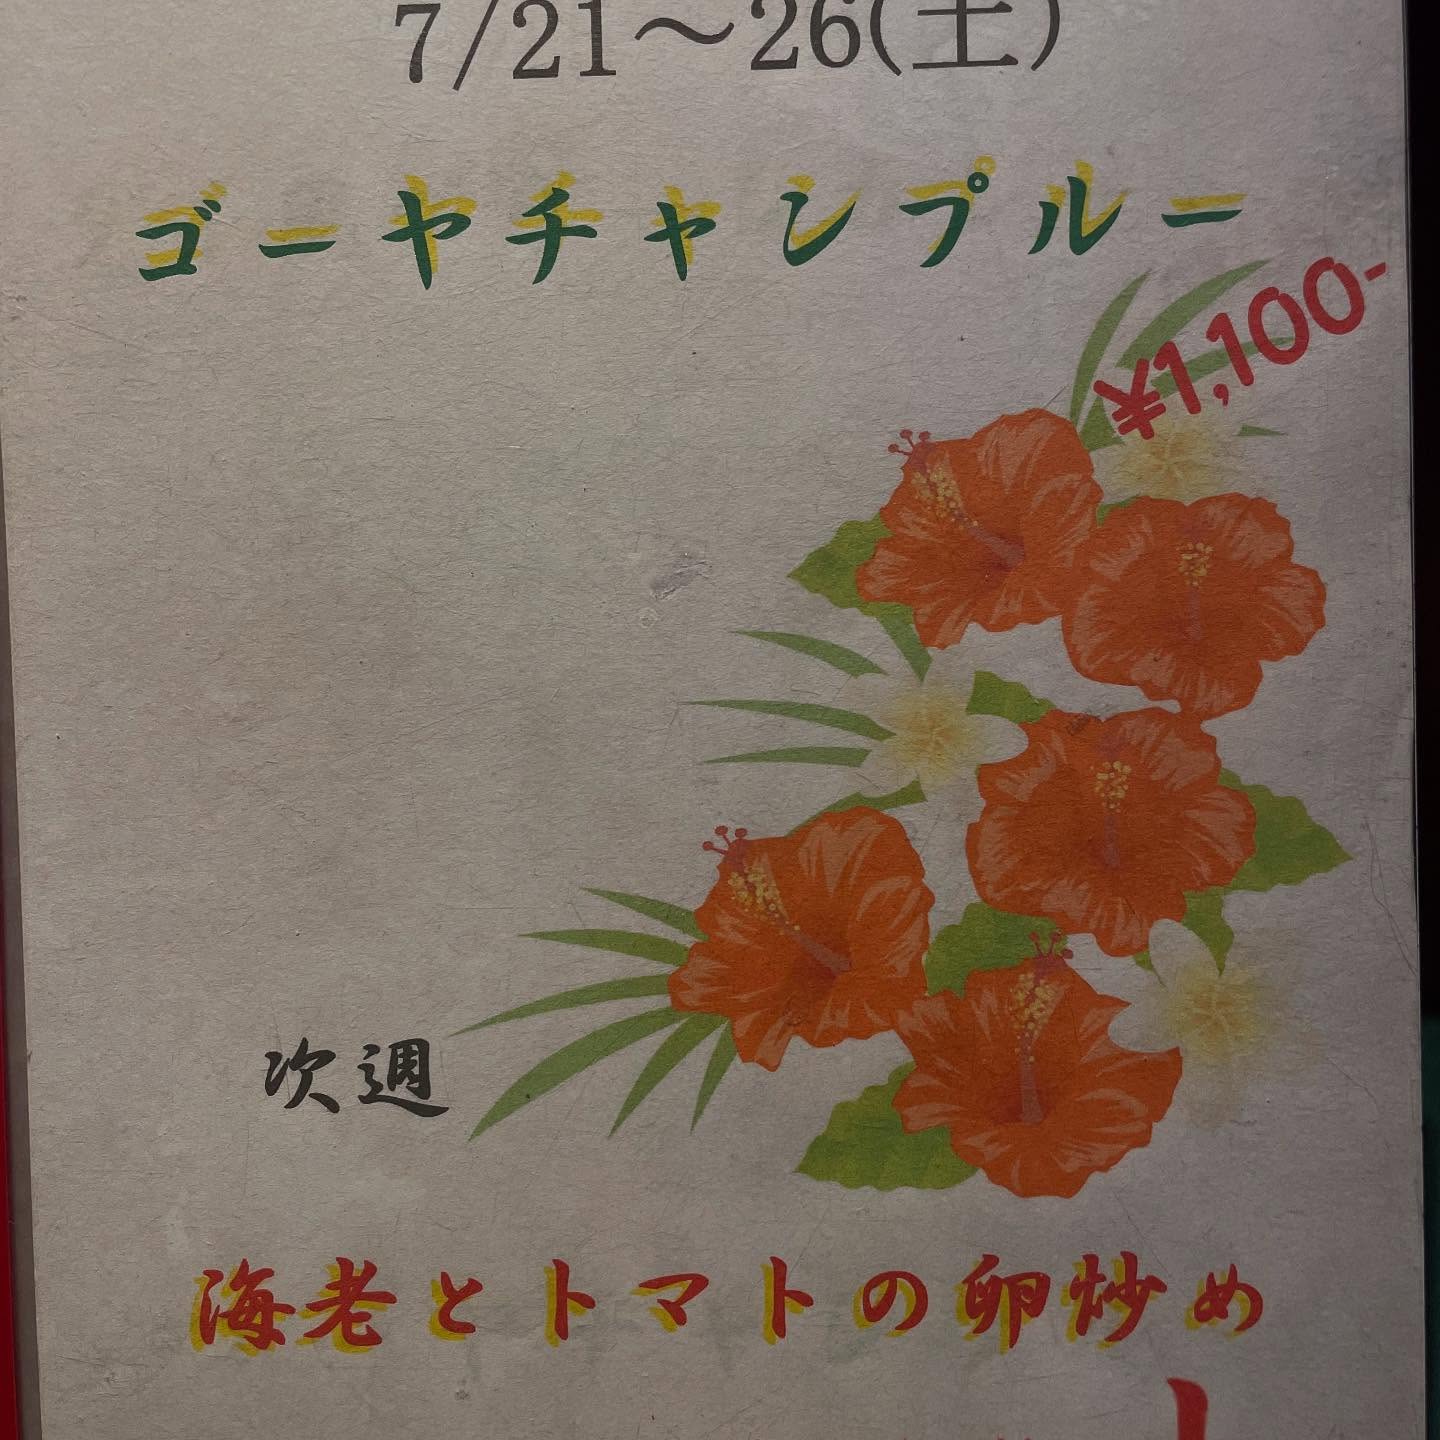 7/21～26(土)
ゴーヤチャンプルー
¥1,100-
次週
海老とトマトの卵炒め